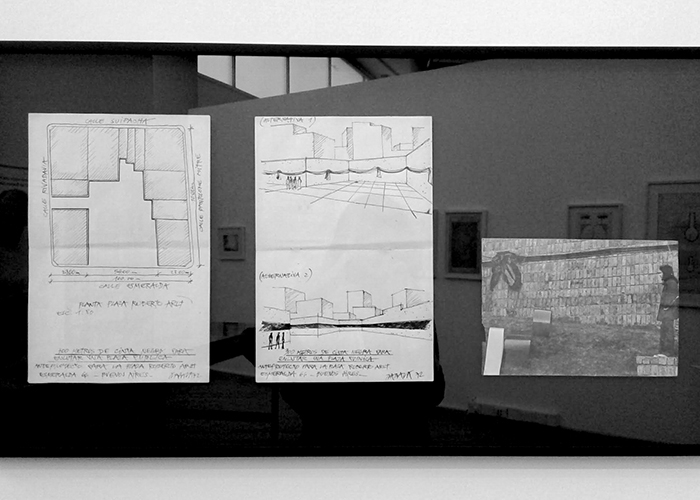 CALLE SUIPACHA
CALLE RIVADAVIA
CALLE BARTOLOME MITRE
CALLE ESMERALDA
PLANTA PLAZA ROBERTO ARLT
ESC. 1:
300 METROS DE CINTA NEGRA PARA
ENLUTAR UNA PLAZA PUBLICA
ANTEPROYECTO PARA LA PLAZA ROBERTO ARLT
ESMERALDA 6 - BUENOS AIRES.
(ALTERNATIVA 1)
(ALTERNATIVA 2)
300 METROS DE CINTA NEGRA PARA
ENLUTAR UNA PLAZA PUBLICA
ANTEPROYECTO PARA LA PLAZA ROBERTO ARLT
ESMERALDA 6 - BUENOS AIRES.